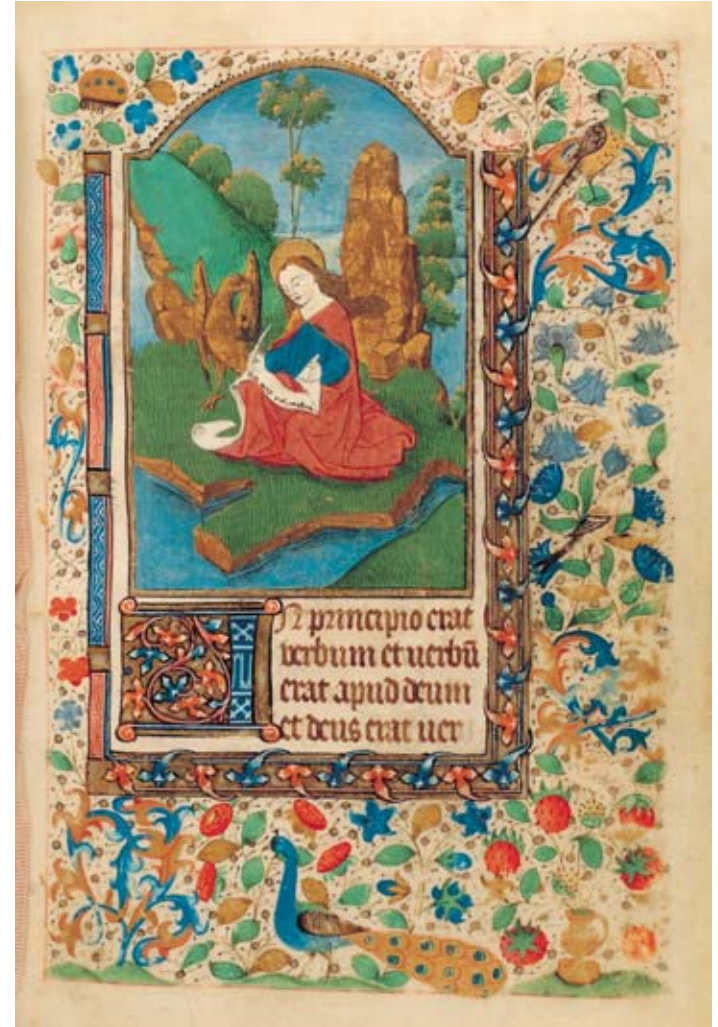 In principio erat
verbum et uerbū
erat apud deum
et deus erat uer